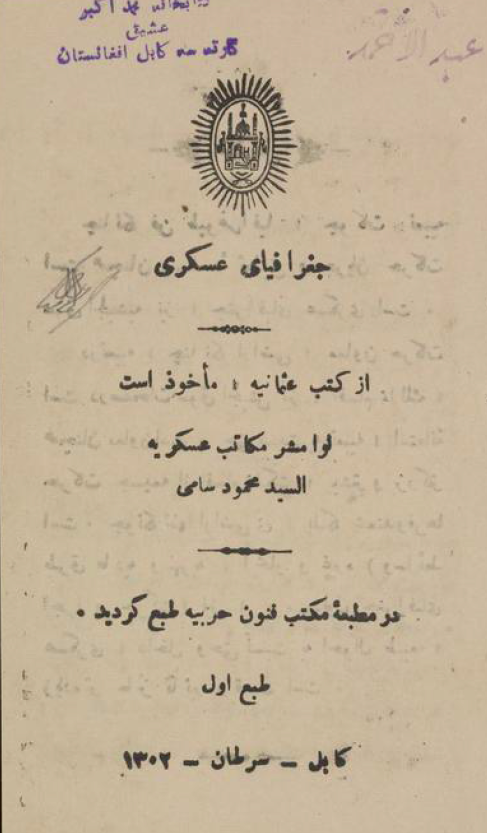 محمد اکبر
عشیق
کارته سه کابل افغانستان
عبد الاحمد
جغرافیای عسکری
از کتب عثمانیه ؛ مأخوذ است
لوا مشر مکاتب عسکریه
السید محمود سامی
در مطبعهٔ مکتب فنون حربیه طبع گردید .
طبع اول
کابل – سرطان – ۱۳۰۲